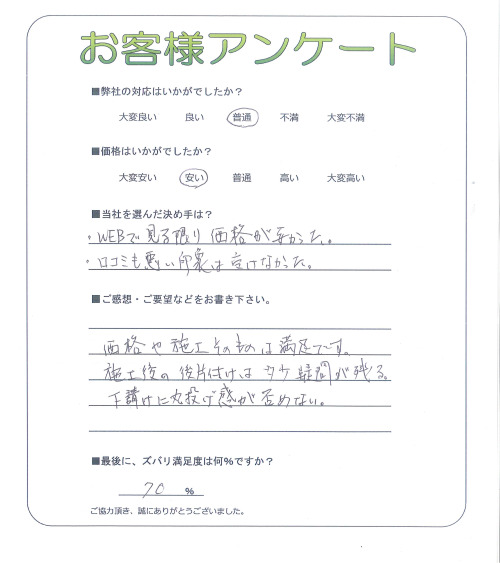 お客様アンケート
■弊社の対応はいかがでしたか？
大変良い 良い 普通 不満 大変不満
■価格はいかがでしたか？
大変安い 安い 普通 高い 大変高い
■当社を選んだ決め手は？
・WEBで見る限り価格が安かった。
・口コミも悪い印象は受けなかった。
■ご感想・ご要望などをお書き下さい。
価格や施工そのものは満足です。
施工後の後片付けは 疑問が残る。
下請けに丸投げ感が否めない。
■最後に、ズバリ満足度は何％ですか？
70 ％
ご協力頂き、誠にありがとうございました。